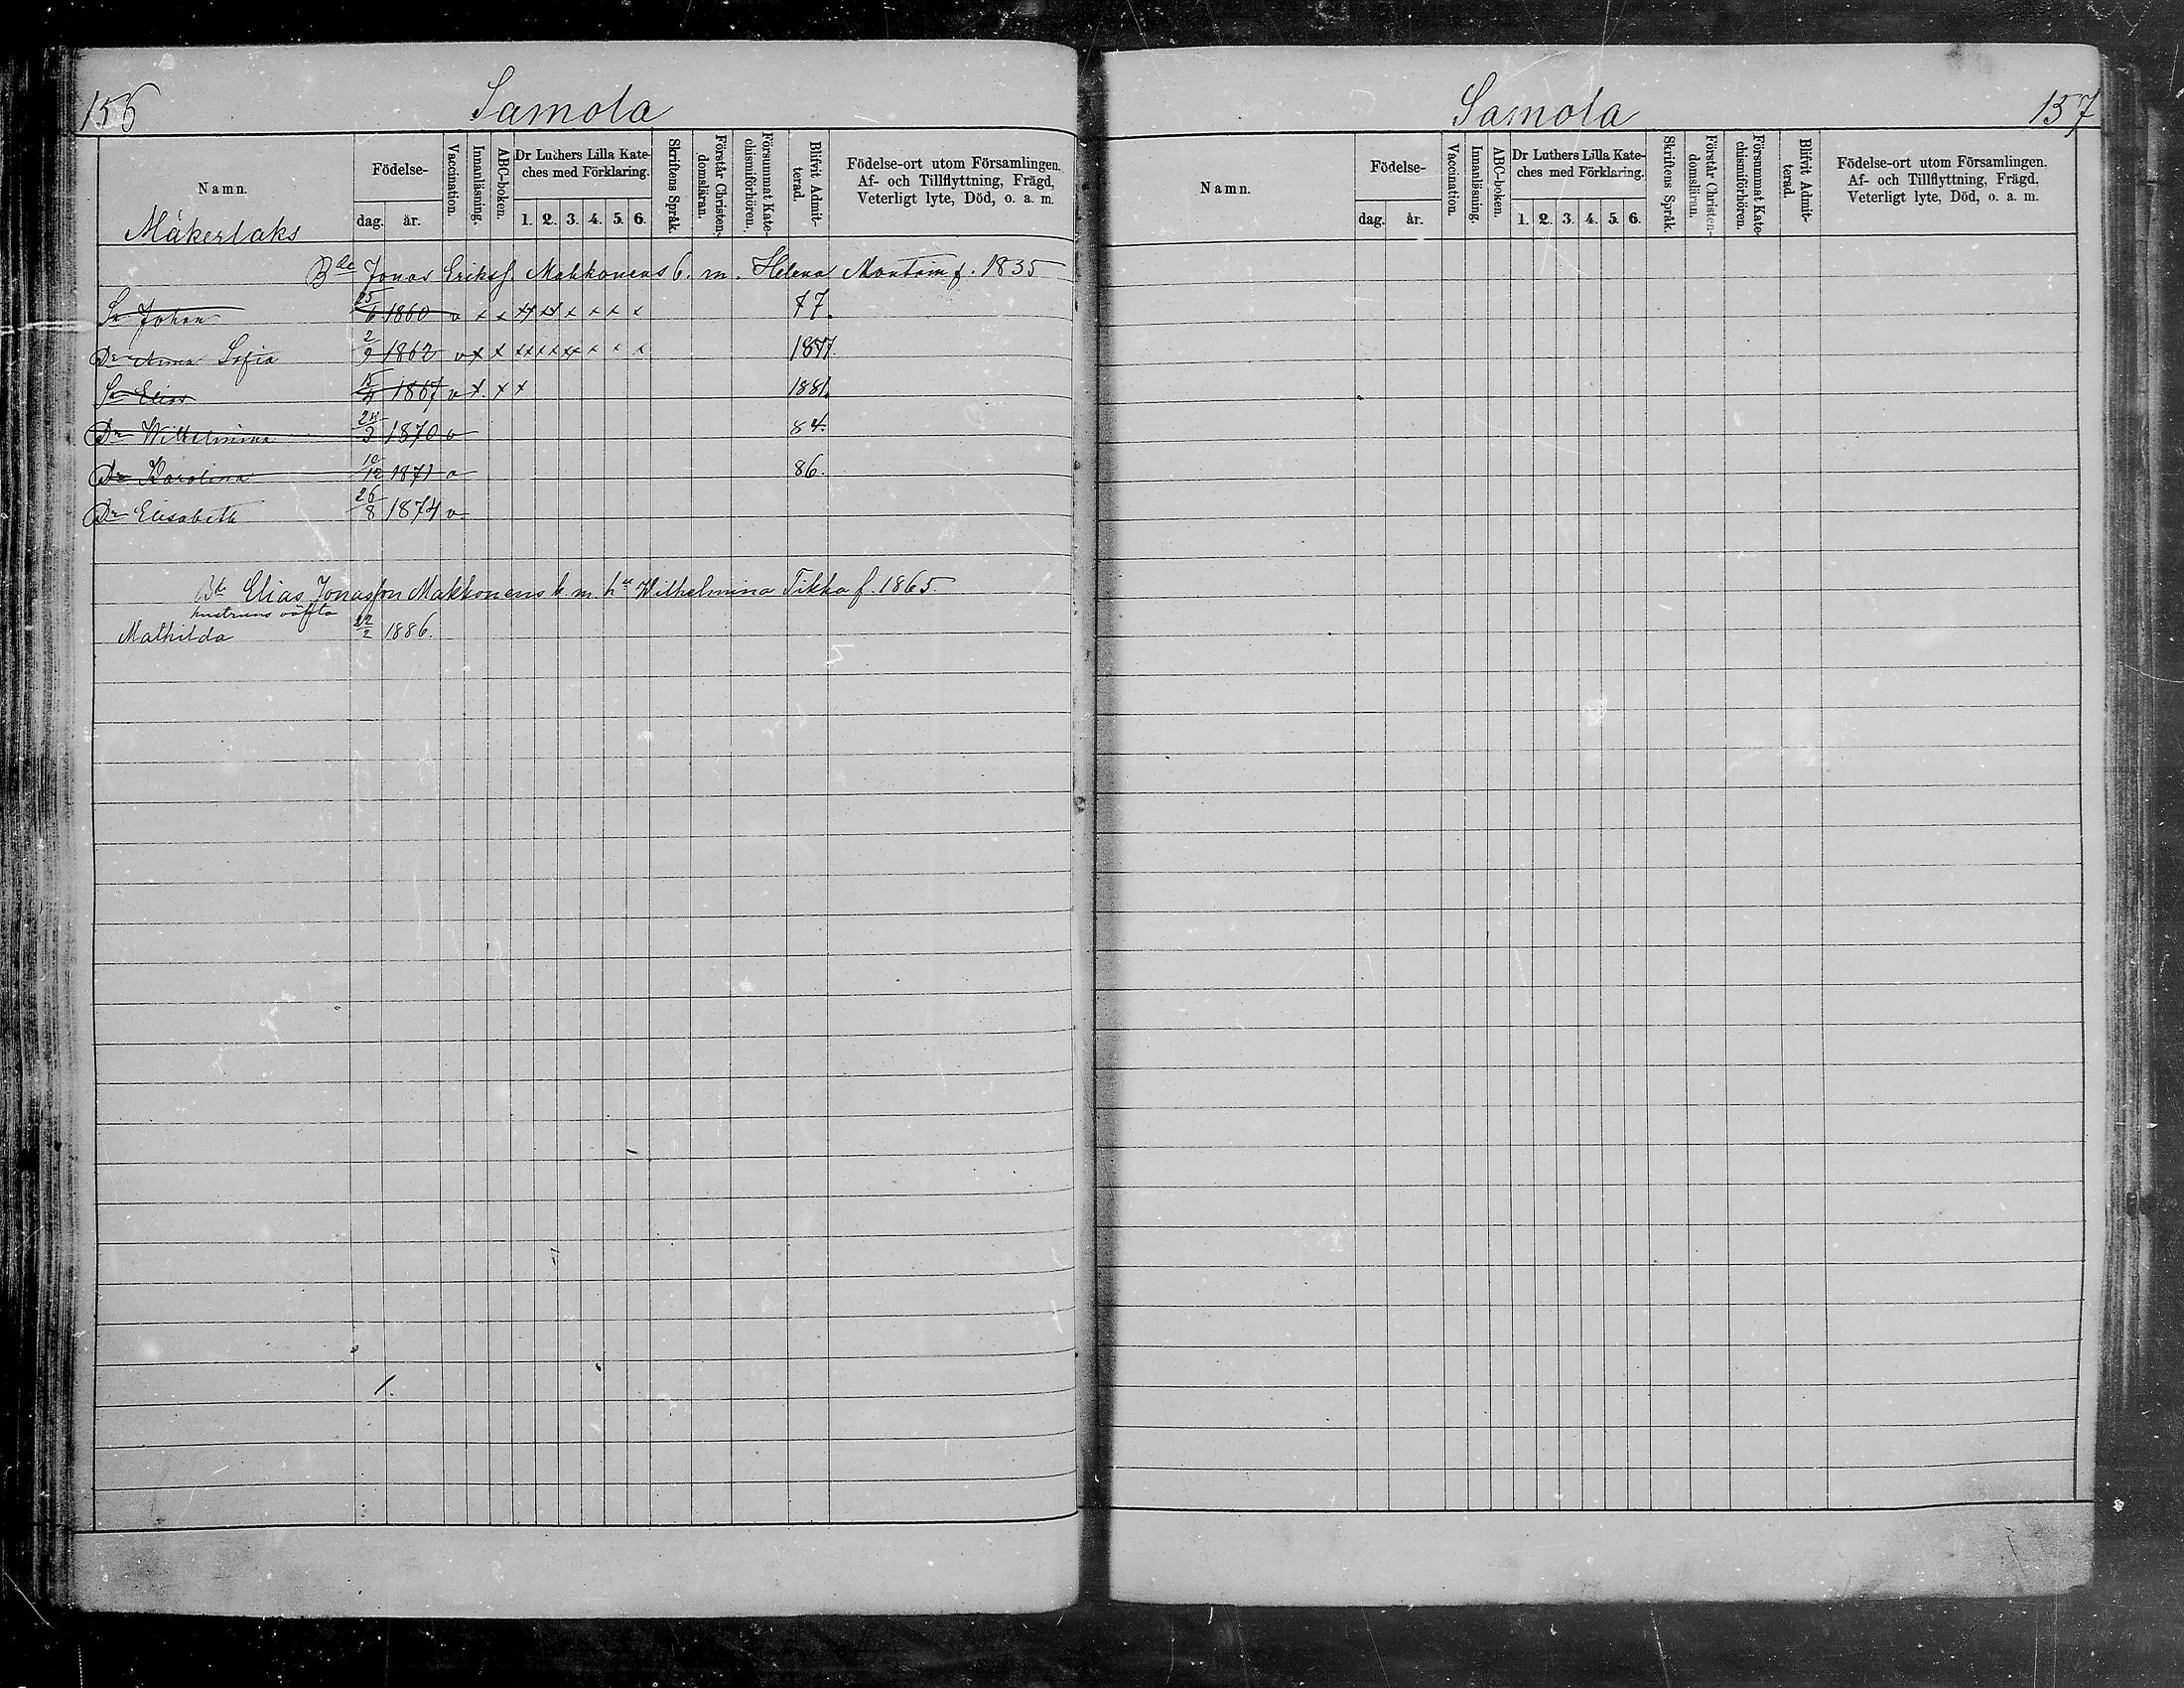 156 Samola
Namn. Födelse- dag. år. Vaccination. Innanläsning. ABC-boken. Dr Luthers Lilla Kateches med Förklaring. 1. 2. 3. 4. 5. 6. Skriftens Språk. Förstår Christendomsläran. Försummat Katechismiförhören. Blifvit Admitterad. Födelse-ort utom Församlingen. Af- och Tillflyttning, Frägd, Veterligt lyte, Död, o. a. m.
Mäkerlaks
Bde Jonas Eriks Makkonens b. m. Helena f. 1835
Sn Johan 25/6 1860 v x x x x x x x x 77.
Dr Anna Sofia 2/9 1862 v x x x x x x x x 1877.
Sn Elias 15/4 1867 v x x x 1881.
Dr Wilhelmina 24/3 1870 v 84.
Dr Karolina 10/12 1871 v 86.
Dr Elisabeth 26/8 1874 v
Bd Elias Jonasson Makkonens b m hu Wilhelmina Tikka f. 1865
hustruns oäkta
Mathilda 22/2 1886.
Samola 157
Namn. Födelse- dag. år. Vaccination. Innanläsning. ABC-boken. Dr Luthers Lilla Kateches med Förklaring. 1. 2. 3. 4. 5. 6. Skriftens Språk. Förstår Christendomsläran. Försummat Katechismiförhören. Blifvit Admitterad. Födelse-ort utom Församlingen. Af- och Tillflyttning, Frägd, Veterligt lyte, Död, o. a. m.